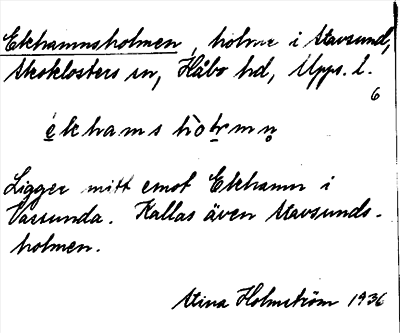 Ekhamnsholmen, holme i Stavsund,
Skoklosters sn, Håbo hd, Upps. l.
6
é̱khams hòḷmn̥
Ligger mitt emot Ekhamn i
Vassunda. Kallas även Stavsunds-
holmen.
Stina Holmström 1936